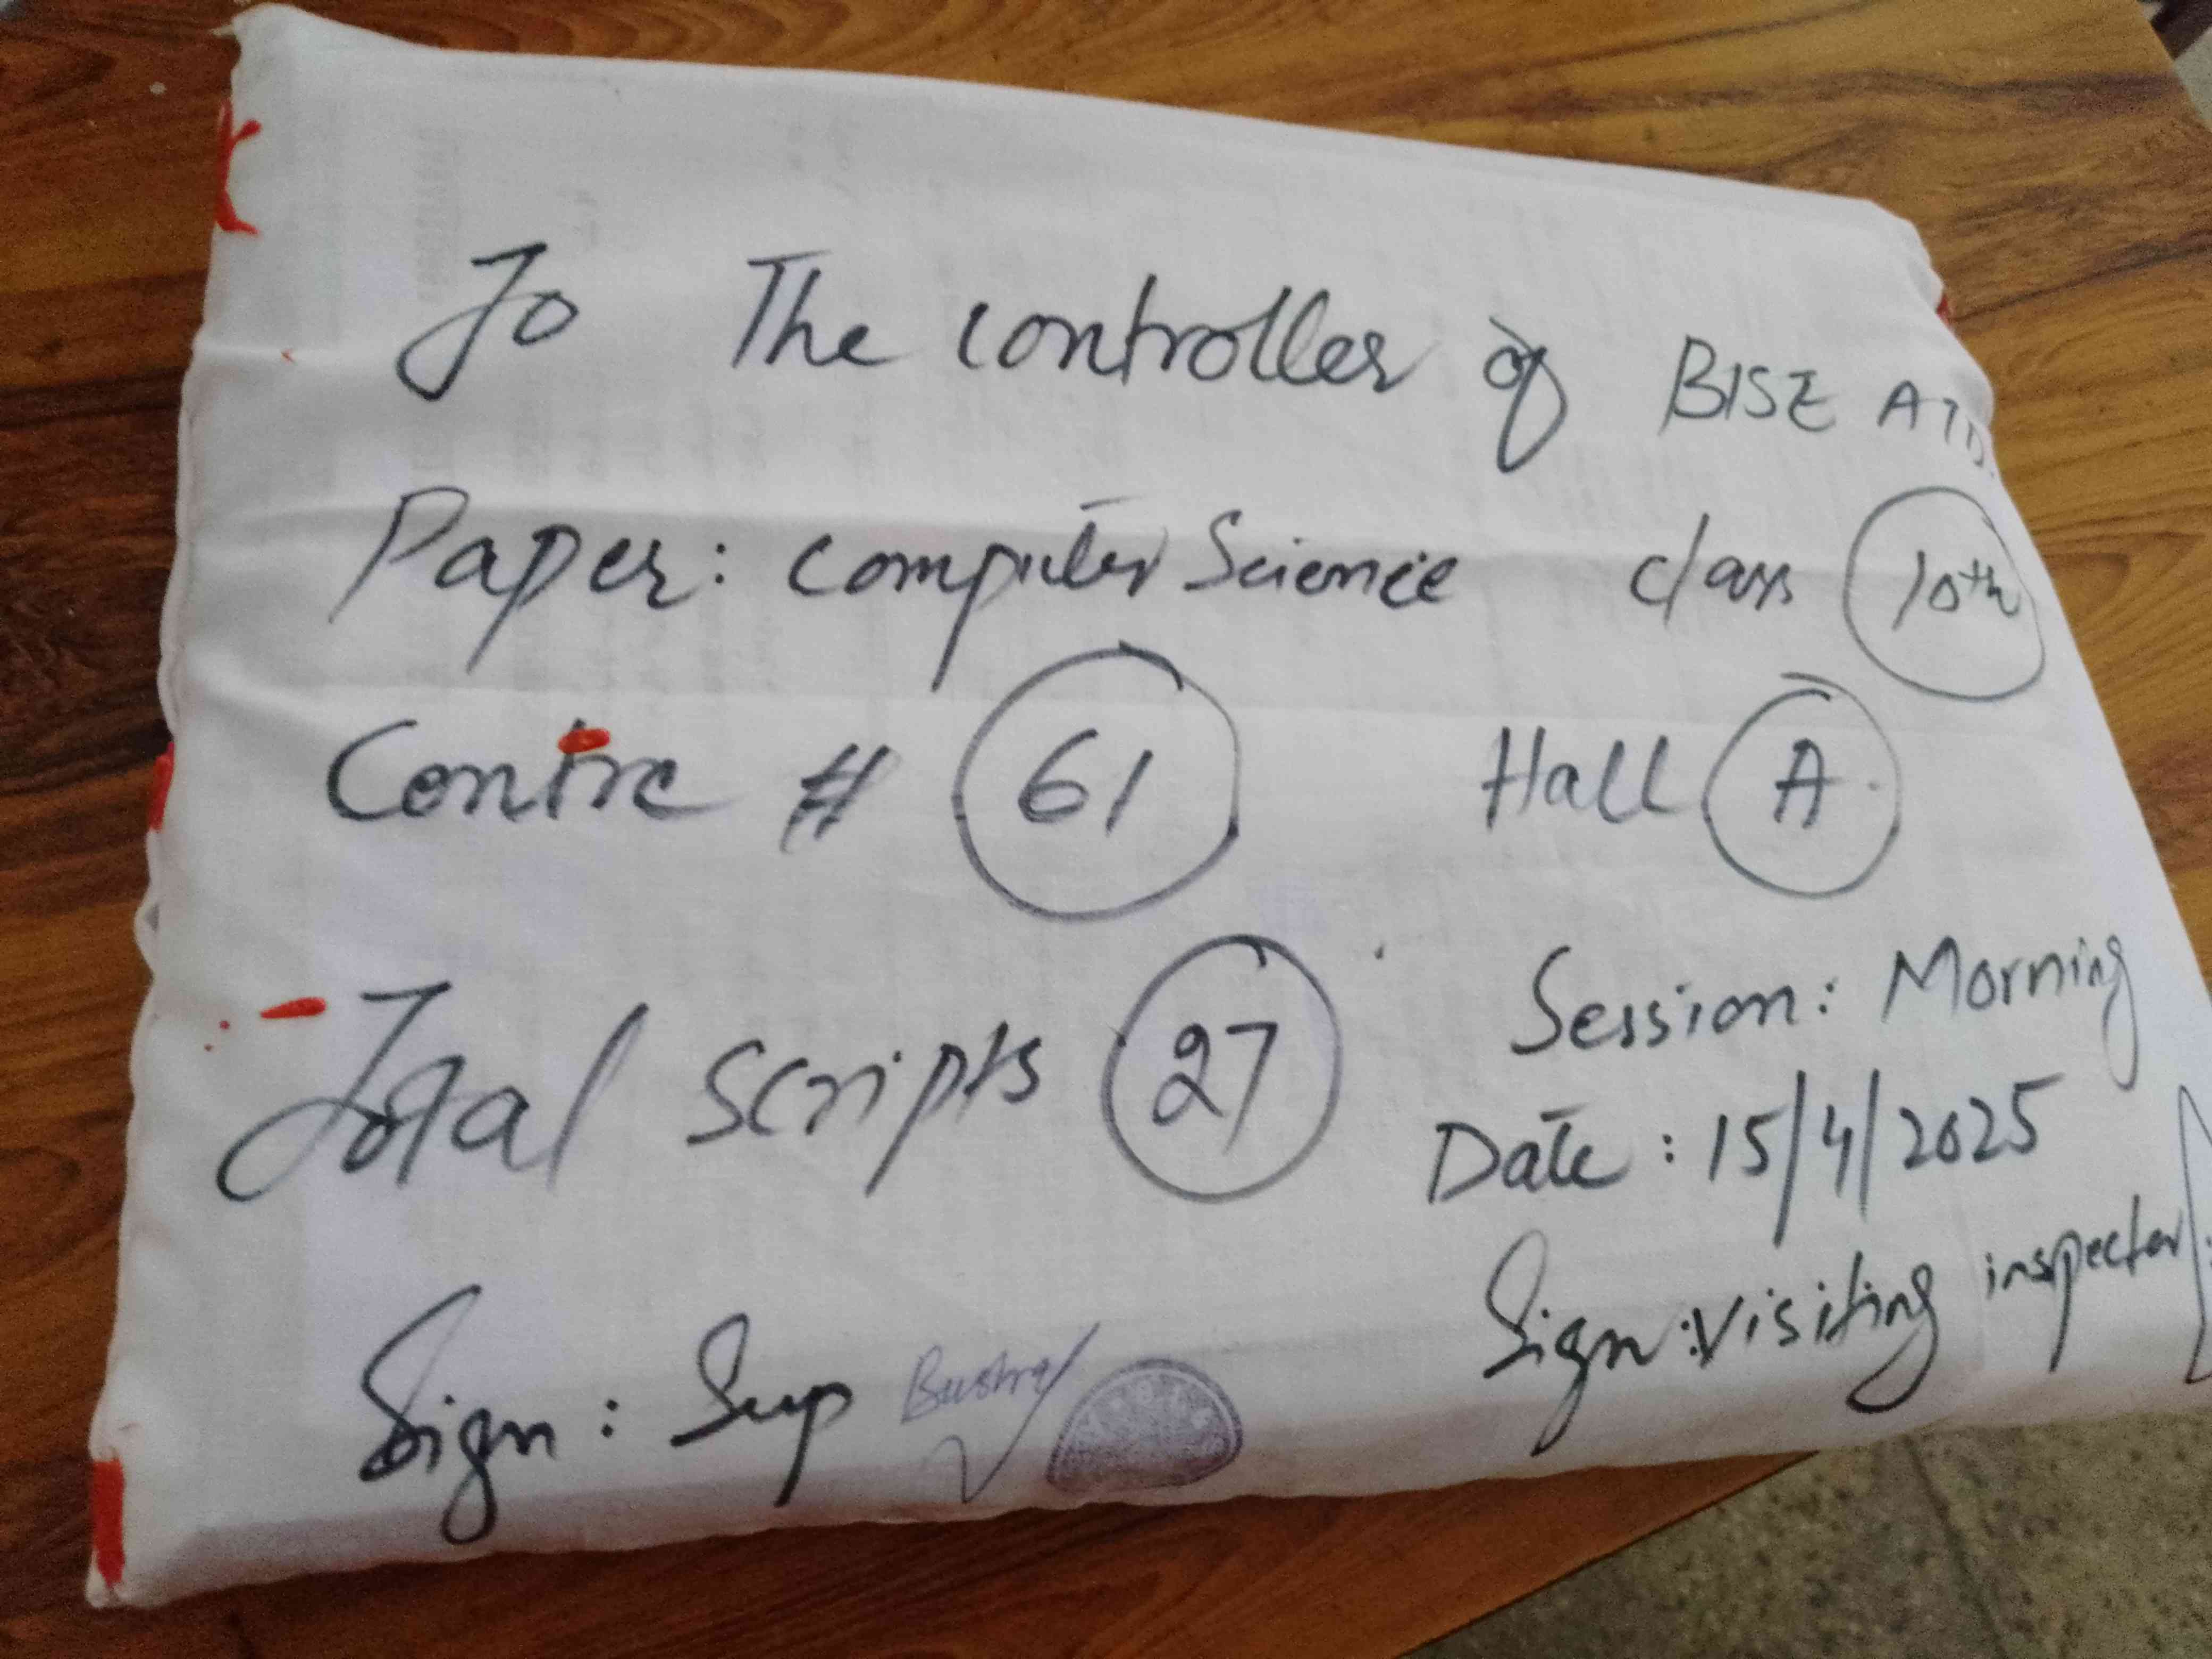 To The controller of BISE ATD.
Paper: Computer Science class 10th
Centre # 61 Hall A
Total scripts 27 Session: Morning
Date: 15/4/2025
Sign: Sup Bushra Sign: Visiting inspector